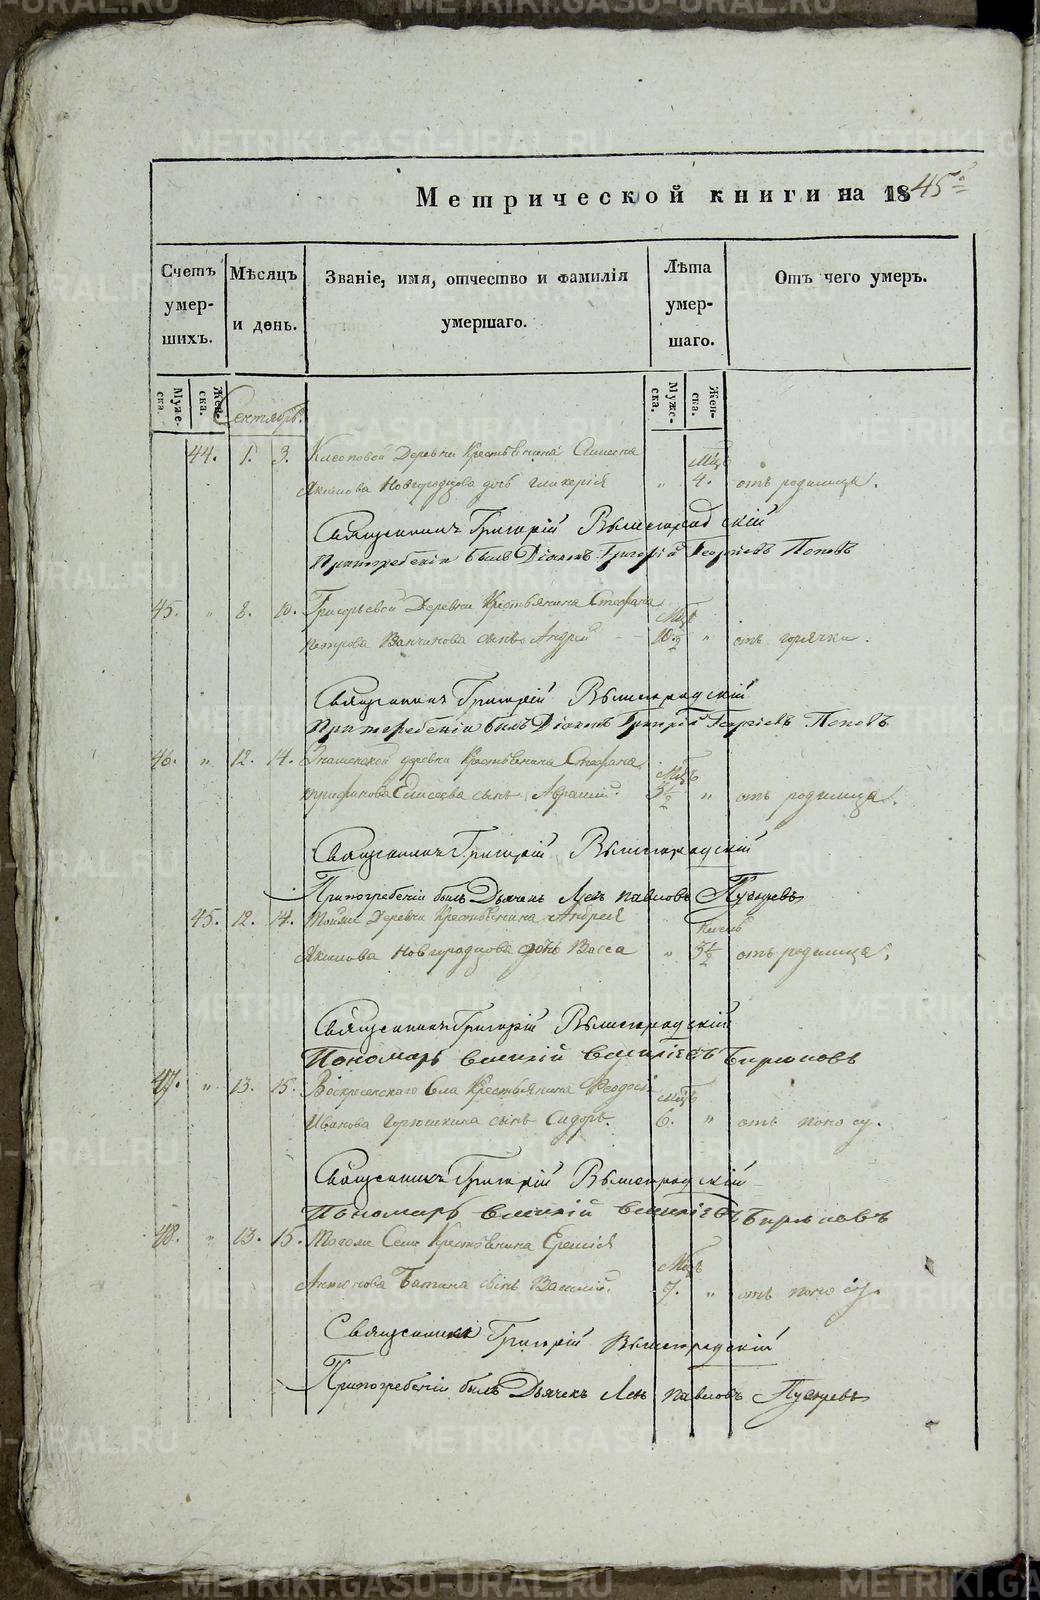 Метрической книги на 1845й
Счетъ умер-шихъ.
Мѣсяцъ и день.
Званіе, имя, отчество и фамилія умершаго.
Лѣта умер-шаго.
Отъ чего умеръ.
Муже-ска.
Жен-ска.
Муже-ска.
Жен-ска.
Сентябрь.
44. 1. 3. Деревни Крестьянина
Мцъ
Якимова Новгородцова дочь Гликерія " 4. отъ родимца.
Священникъ Григорій Вышегородскій
При погребеніи былъ Діаконъ Григорій Георгіевъ Поповъ
45. " 8. 10. Григорьевой Деревни Крестьянина Стефана
Мцъ
Петрова сынъ Андрей 10½ " отъ горячки.
Священникъ Григорій Вышегородскій
При погребеніи былъ Діаконъ Григорій Георгіевъ Поповъ
46. " 12. 14. деревни Крестьянина Стефана
Мцъ
Трифанова Елисеева сынъ Аврамій. 3½ " отъ родимца.
Священникъ Григорій Вышегородскій
При погребеніи былъ Дьячекъ Левъ Павловъ
45. 12. 14. Деревни Крестьянина Андрея
Якимова Новгородцова дочь Васса " 3½ отъ родимца.
Священникъ Григорій Вышегородскій
Пономарь Василій Васильевъ Бирюковъ
47. " 13. 15. Воскресенского Села Крестьянина Феодосія
Мцъ
Иванова Горюшкина сынъ Сидоръ. 6. " отъ поносу.
Священникъ Григорій Вышегородскій
Пономарь Василій Васильевъ Бирюковъ
48. " 13. 15. Тогоже Села Крестьянина Еремія
Мцъ
сынъ Василій. 7. " отъ поносу.
Священникъ Григорій Вышегородскій
При погребеніи былъ Дьячекъ Левъ Павловъ
METRIKI.GASO-URAL.RU